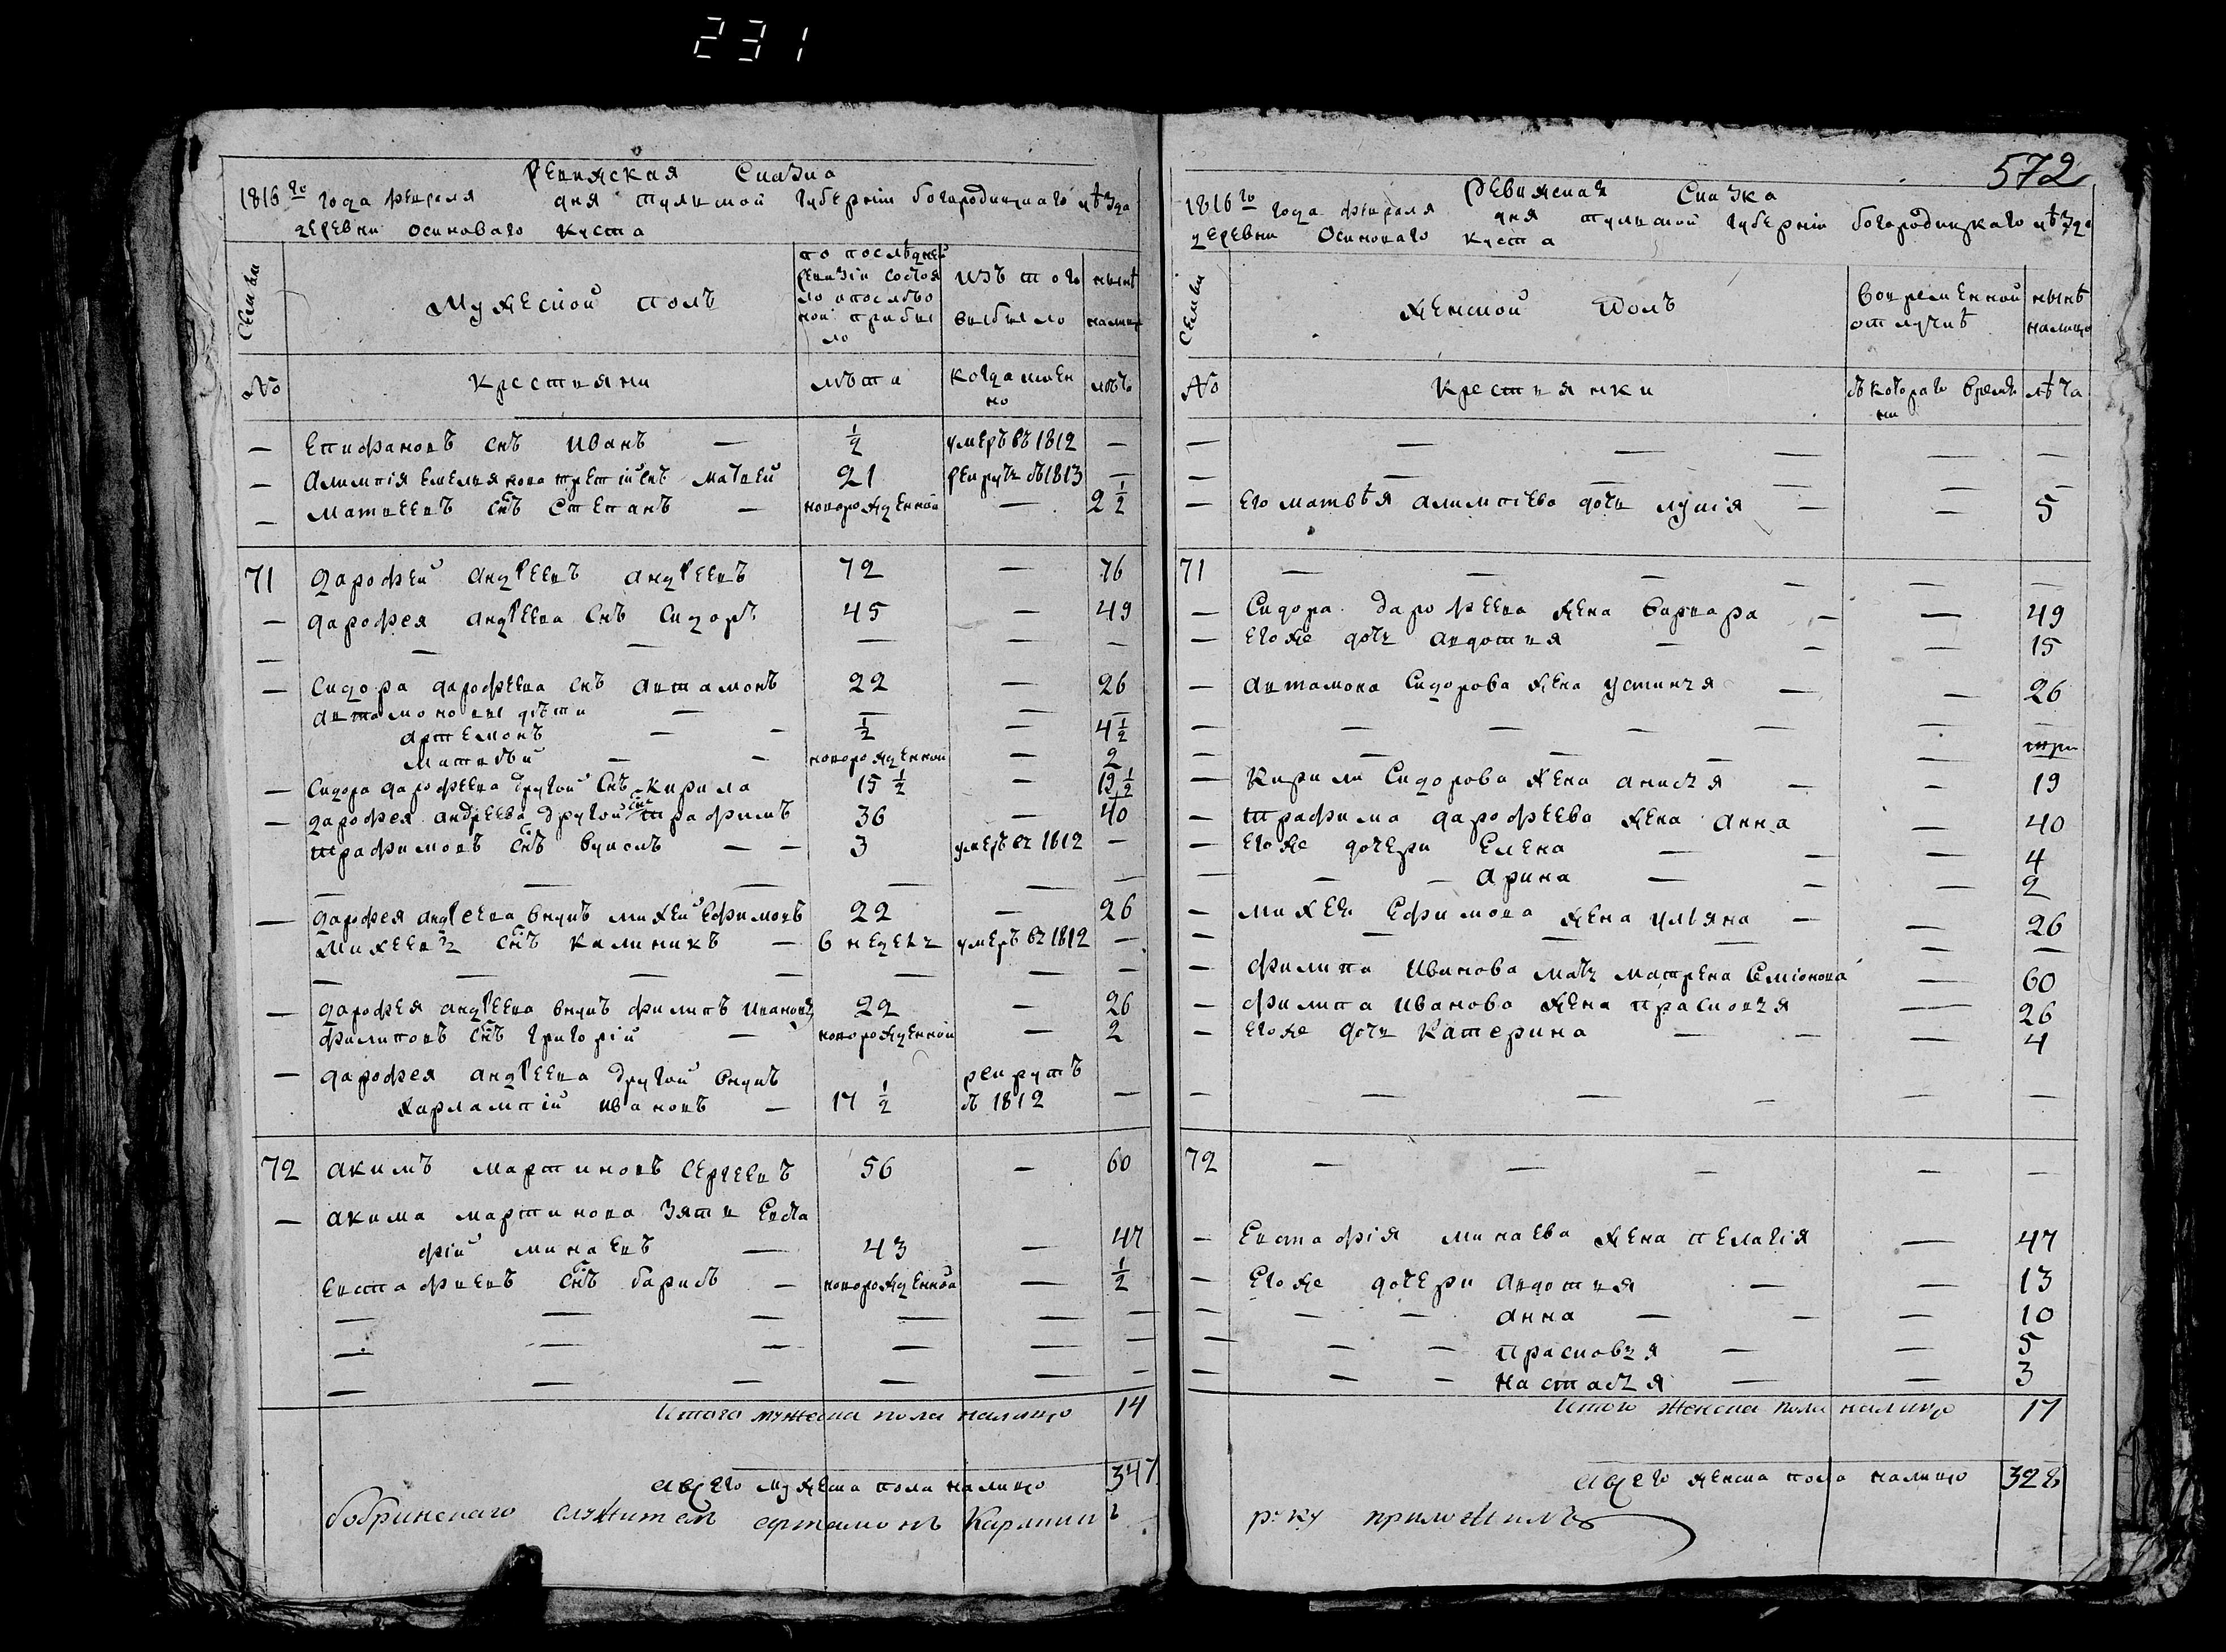 231
Ревижская Сказка
1816го года февраля дня тульской губернии богородицкаго уѣзда
деревни Осиноваго Куста
Семьи
Мужеской полъ
по послѣдней
ревизіи состоя
ло и послѣ то
ной прибы
ло
изъ того
выбыло
нынѣ
налицо
№
Крестьяни
лѣта
когда имен
но
лѣта
— Епифановъ снъ Иванъ — ½ умеръ въ 1812 —
— Алимпія Емельянова третій снъ Матвей 21 рекрутъ въ 1813 —
— Матвеевъ снъ Степанъ — новорожденной — 2 ½
71 Дарофей Андреевъ Андреевъ 72 — 76
— Дарофея Андреева снъ Сидоръ 45 — 49
— — — — — —
— Сидора Дарофеева снъ Автамонъ 22 — 26
Автамоновы дѣти — — — —
Артемонъ — — ½ — 4 ½
Матвѣй — — новорожденной — 2
— Сидора Дарофеева другой снъ Кирила 15 ½ — 19 ½
— Дарофея Андреева другой снъ Трафимъ 36 — 40
Трафимовъ снъ Вуколъ — — 3 умеръ въ 1812 —
— — — — — —
— Дарофея Андреева внукъ Михей Ефимовъ 22 — 26
Михеевъ снъ Калиникъ — 6 недель умеръ въ 1812 —
— — — — — — —
— Дарофея Андреева внукъ Филипъ Ивановъ 22 — 26
Филиповъ снъ Григорій — новорожденной — 2
— Дарофея Андреева другой внукъ рекрутъ
Харлампій Ивановъ — 17 ½ въ 1812 —
72 Акимъ Мартиновъ Сергеевъ 56 — 60
— Акима Мартинова зять Евста
фій Минаевъ — 43 — 47
Евстафиевъ снъ Барисъ — новорожденной — ½
— — — — — —
— — — — — —
— — — — — —
Итого мужеска пола налицо 14
Всего мужеска пола налицо 347
бобринскаго служитель артамонъ Карпинъ
572
Ревижская Сказка
1816го года февраля дня тульской губернии богородицкаго уѣзда
деревни Осиноваго Куста
Семьи
Женской полъ
во временной
отлучкѣ
нынѣ
налицо
№
Крестьянки
съ котораго време
ни
лѣта
— — — — — —
— — — — — —
— Его Матвѣя Алимпіева дочь Лукія — — 5
71 — — — — — —
— Сидора Дарофеева жена Варвара — — 49
— Егоже дочь Авдотья — — — 15
— Автамона Сидорова жена Устинья — — 26
— — — — — — —
— — — — — —
— Кирила Сидорова жена Анисья — — 19
— Трафима Дарофеева жена Анна — 40
— Егоже дочери Елена — — — 4
— — — Арина — — — 2
— Михея Ефимова жена Ульяна — — 26
— — — — — —
— Филипа Иванова мать Матрена Семіонова — 60
— Филипа Иванова жена Прасковья — 26
— Егоже дочь Катерина — — — 4
— — — — — —
72 — — — — —
— Евстафія Минаева жена Пелагія — 47
— Егоже дочери Авдотья — — 13
— — — Анна — — — 10
— — — Прасковья — — 5
— — — Настасья — — 3
Итого женска пола налицо 17
Всего женска пола налицо 328
руку приложилъ